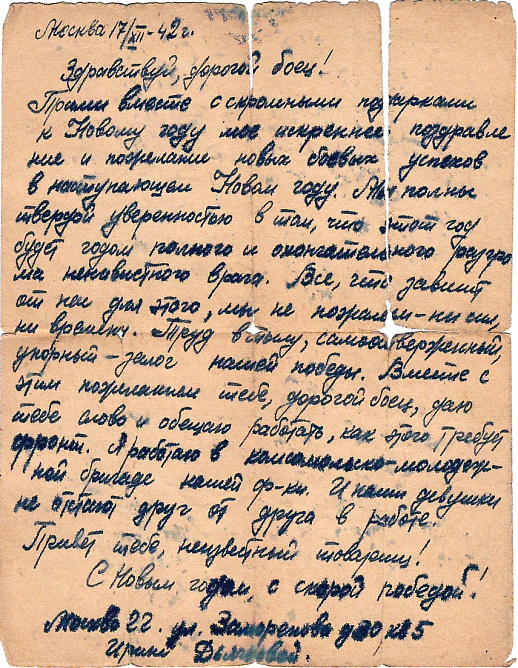 Москва 17/XII-42 г.
Здравствуй, дорогой боец!
Прими вместе с скромными подарками
к Новому году мое искреннее поздравле
ние и пожелание новых боевых успехов
в наступающем Новом году. Мы полны
твердой уверенностью в том, что этот год
будет годом полного и окончательного разгро
ма ненавистного врага. Все, что зависит
от нас для этого, мы не пожалеем - ни сил,
ни времени. Труд в тылу, самоотверженный,
упорный - залог нашей победы. Вместе с
этим пожеланием тебе, дорогой боец, даю
тебе слово и обещаю работать, как этого требует
фронт. Я работаю в комсомольско-молодеж-
ной бригаде нашей ф-ки. И наши девушки
не отстают друг от друга в работе.
Привет тебе, неизвестный товарищ!
С Новым годом, с скорой победой!
Москва 22. ул. Заморенова д 30 кв 5